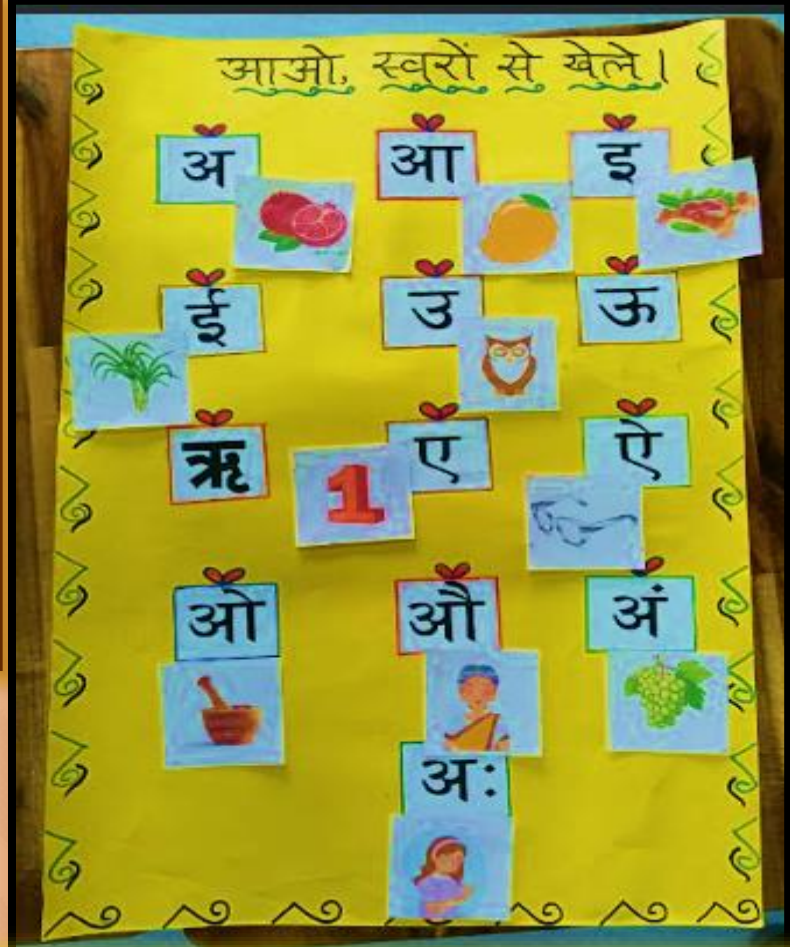 आओ, स्वरों से खेले।
अ आ इ
ई उ ऊ
ऋ 1 ए ऐ
ओ औ अं
अः